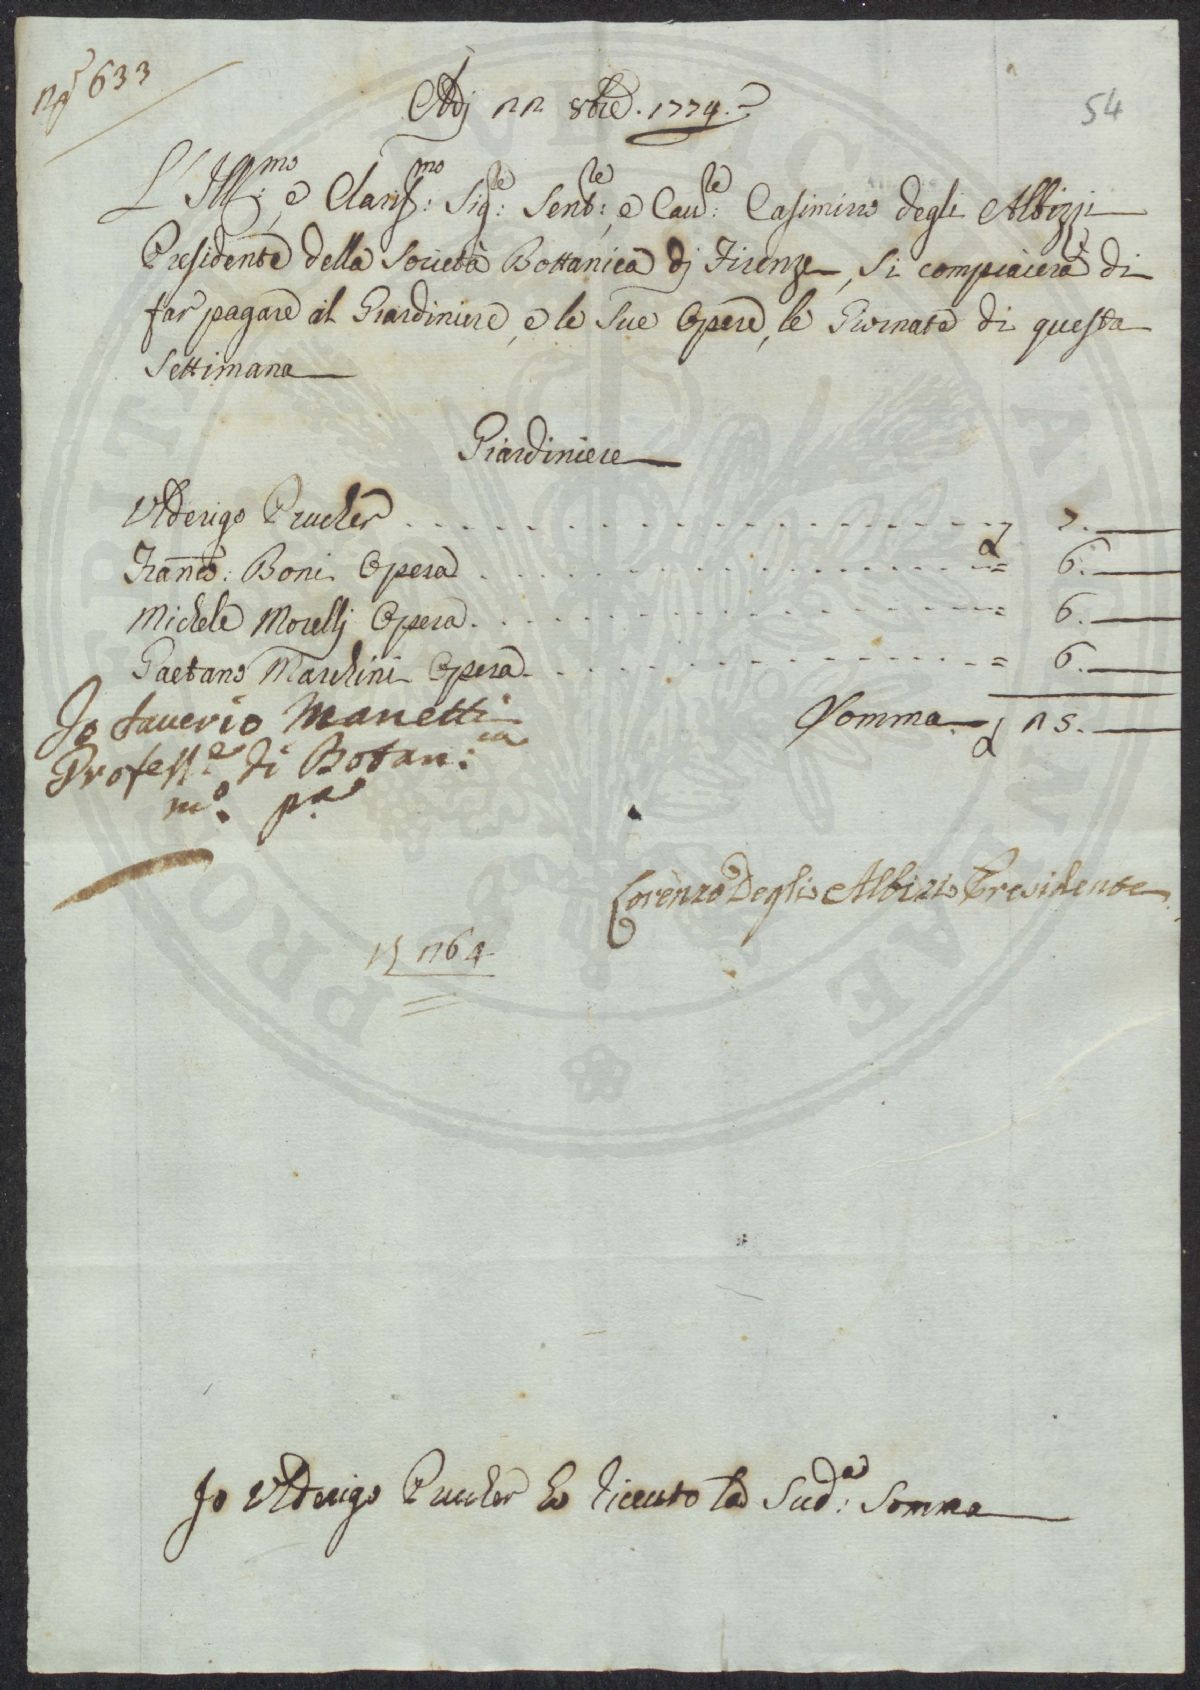 N° 633
54
Adj 22 8bre. 1774.
L'Ill:mo, e Clariss:mo Sig:re Sent:re, e Cau:re Casimirro degli Albizzi
Presidente della Società Bottanica dj Firenze, si compiacerà di
far pagare al Giardiniere, e le sue Opere, le Giornate di questa
settimana
Giardiniere
Ulderigo Prucher . . . . 7. —
Franco: Boni Opera . . . . = 6. —
Michele Morellj Opera . . . . = 6. —
Gaetano Marchini Opera . . . . = 6. —
Somma 25. —
Io Sauerio Manetti
Profess:e di Botan:ca
mo. pa
Lorenzo Degli Albizi Presidente
1764
Io Ulderigo Prucher ho riceuto la Sud:a Somma
PRO